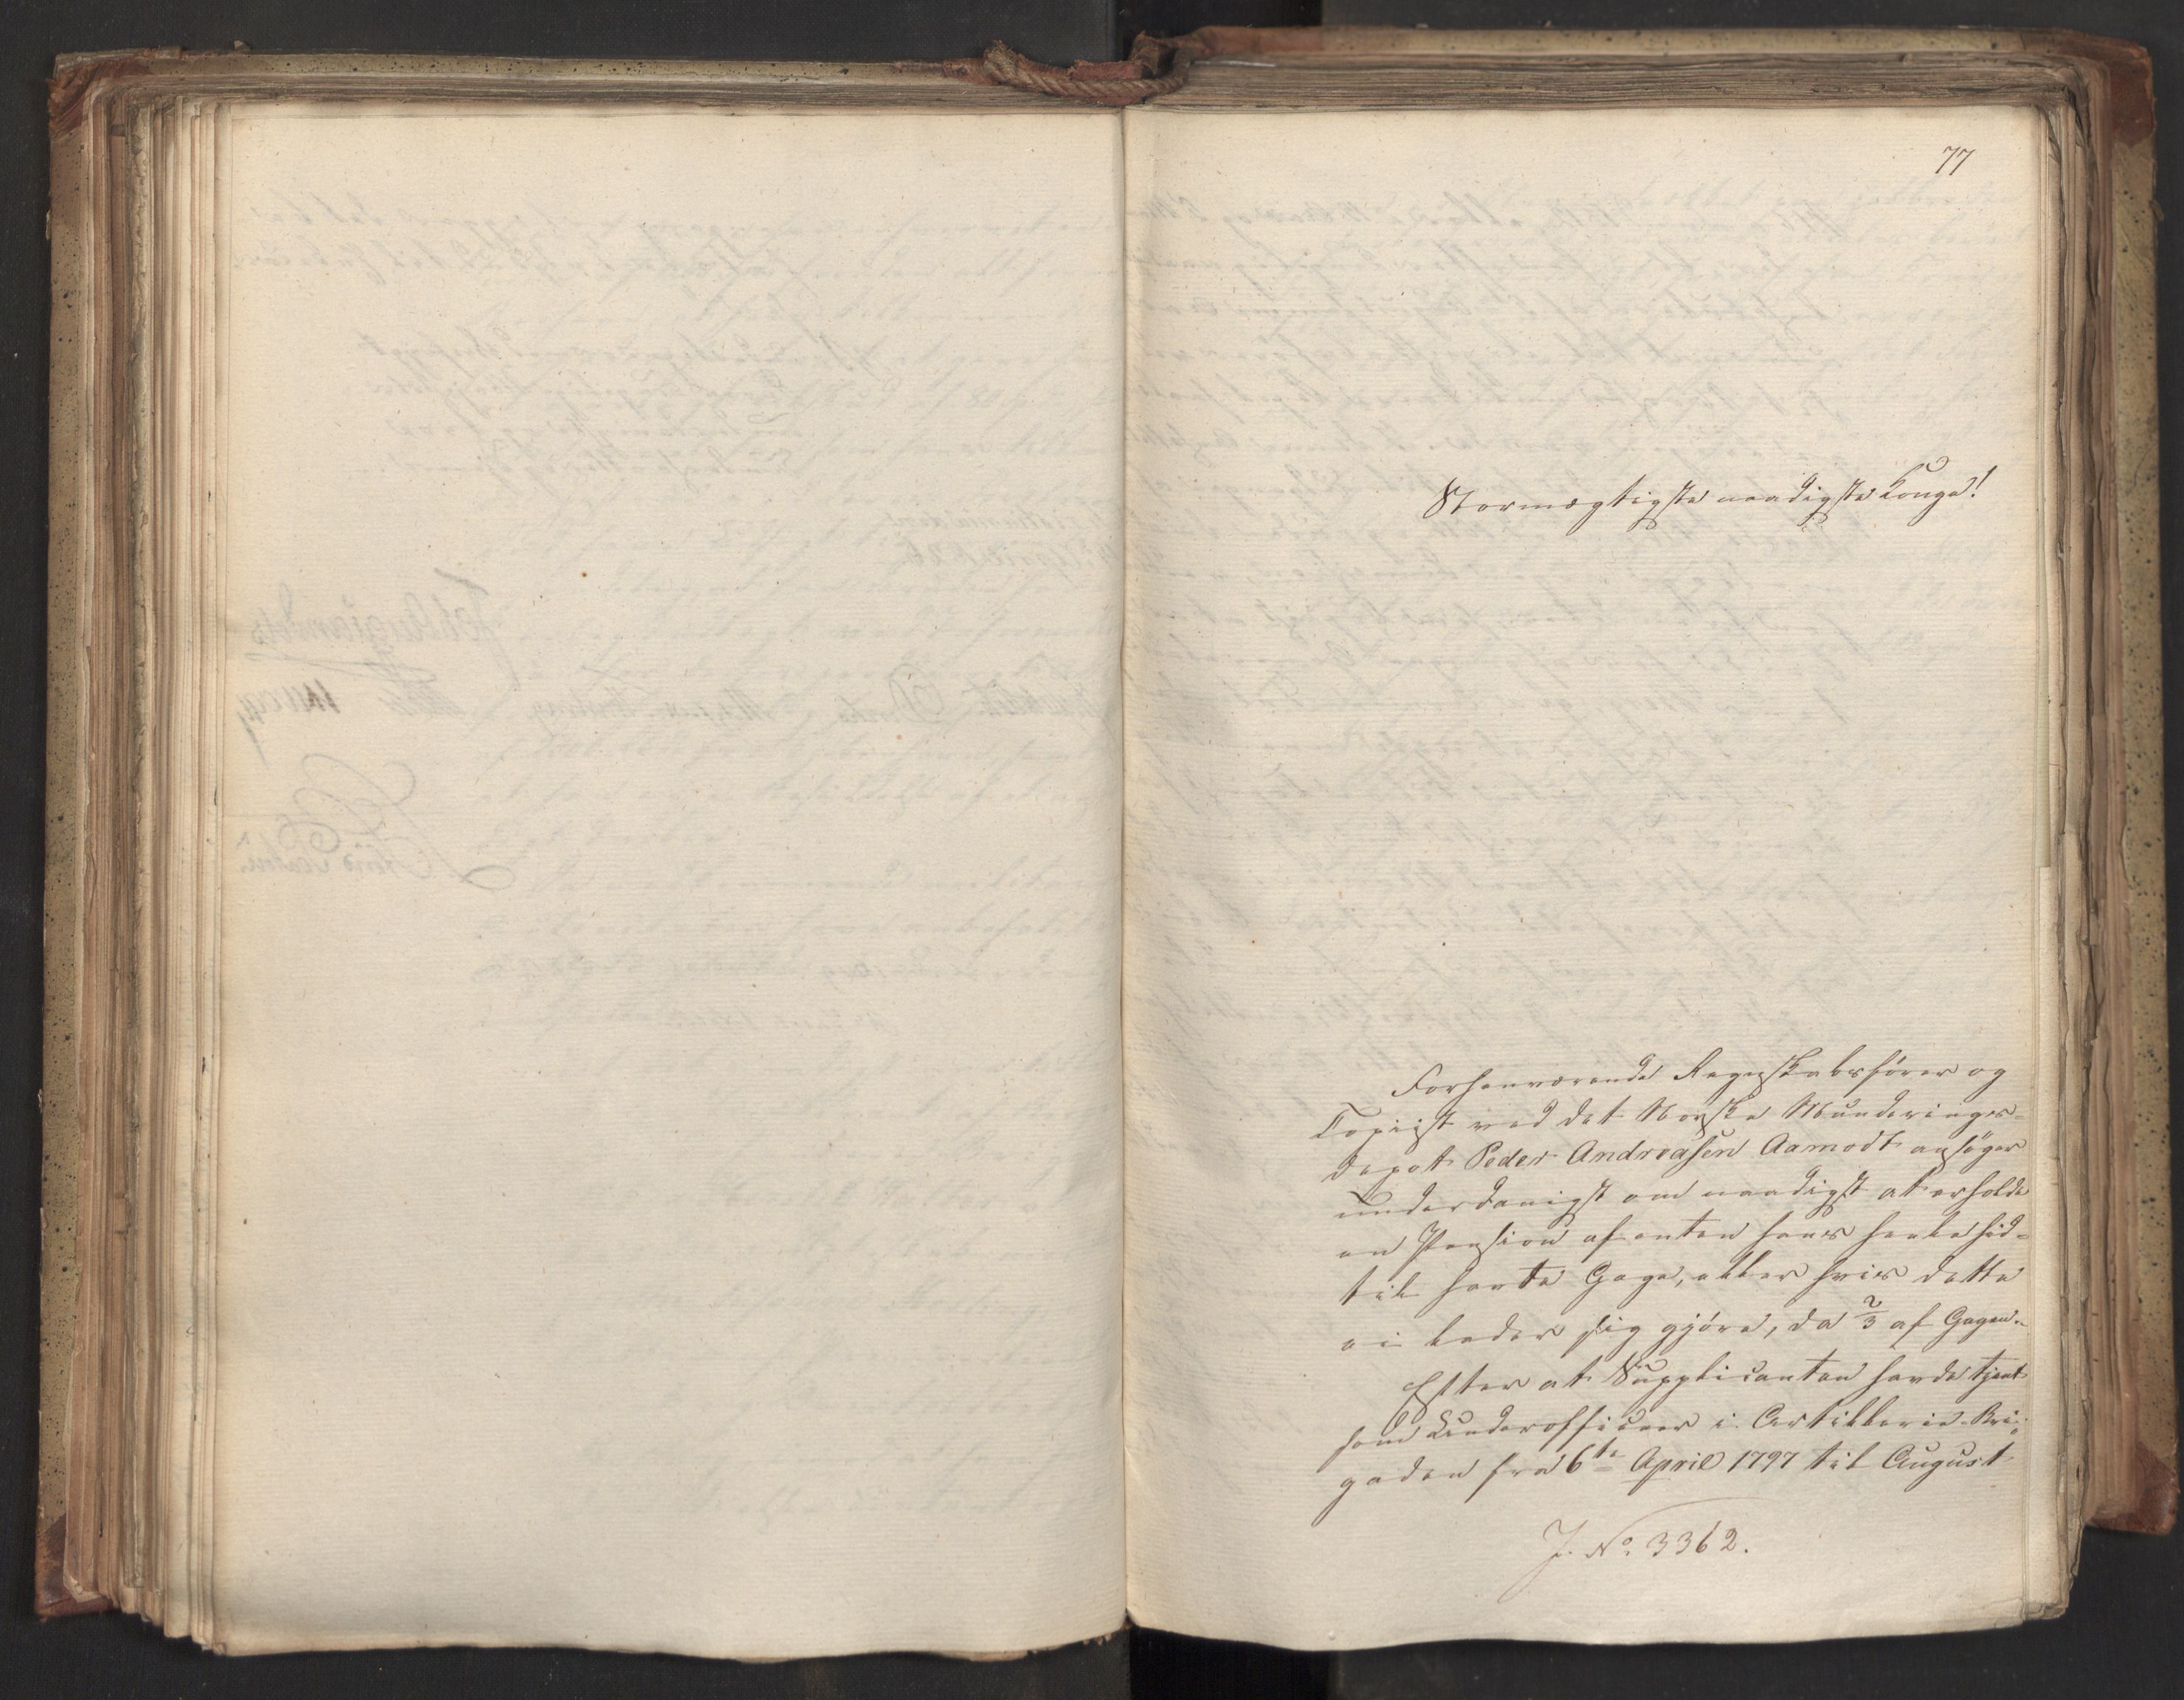 77
Stormægtigste naadigste Konge!
Forhenværende Regnskabsfører og
Copiist ved det Norske Munderings-
depot Peder Andreasen Aamodt ansøger
underdanigst om naadigst at erholde
en Pension af enten hans heele hid-
til havte Gage, eller hvis dette
ei lader sig gjøre, da 2/3 af Gagen.
Efter at Supplicanten havde tjent
som Underofficeer i Artillerie-Bri-
gaden fra 6te April 1797 til August
J. No. 3362.